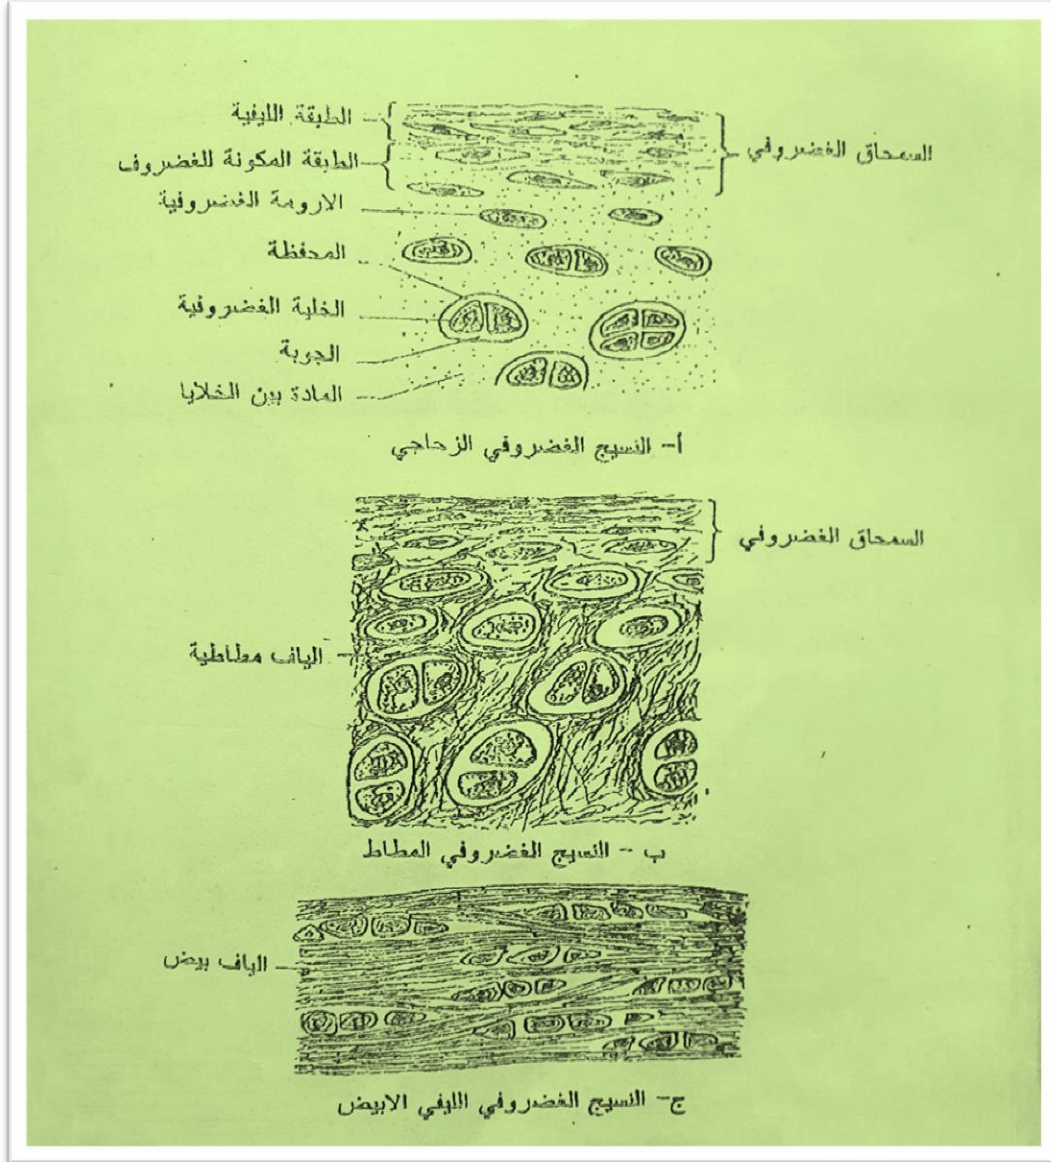 الطبقة الليفية
السمحاق الغضروفي
الطبقة المكونة للغضروف
الارومة الغضروفية
المحفظة
الخلية الغضروفية
الجوبة
المادة بين الخلايا
أ- النسيج الغضروفي الزجاجي
السمحاق الغضروفي
الياف مطاطية
ب - النسيج الغضروفي المطاط
الياف بيض
ج- النسيج الغضروفي الليفي الابيض